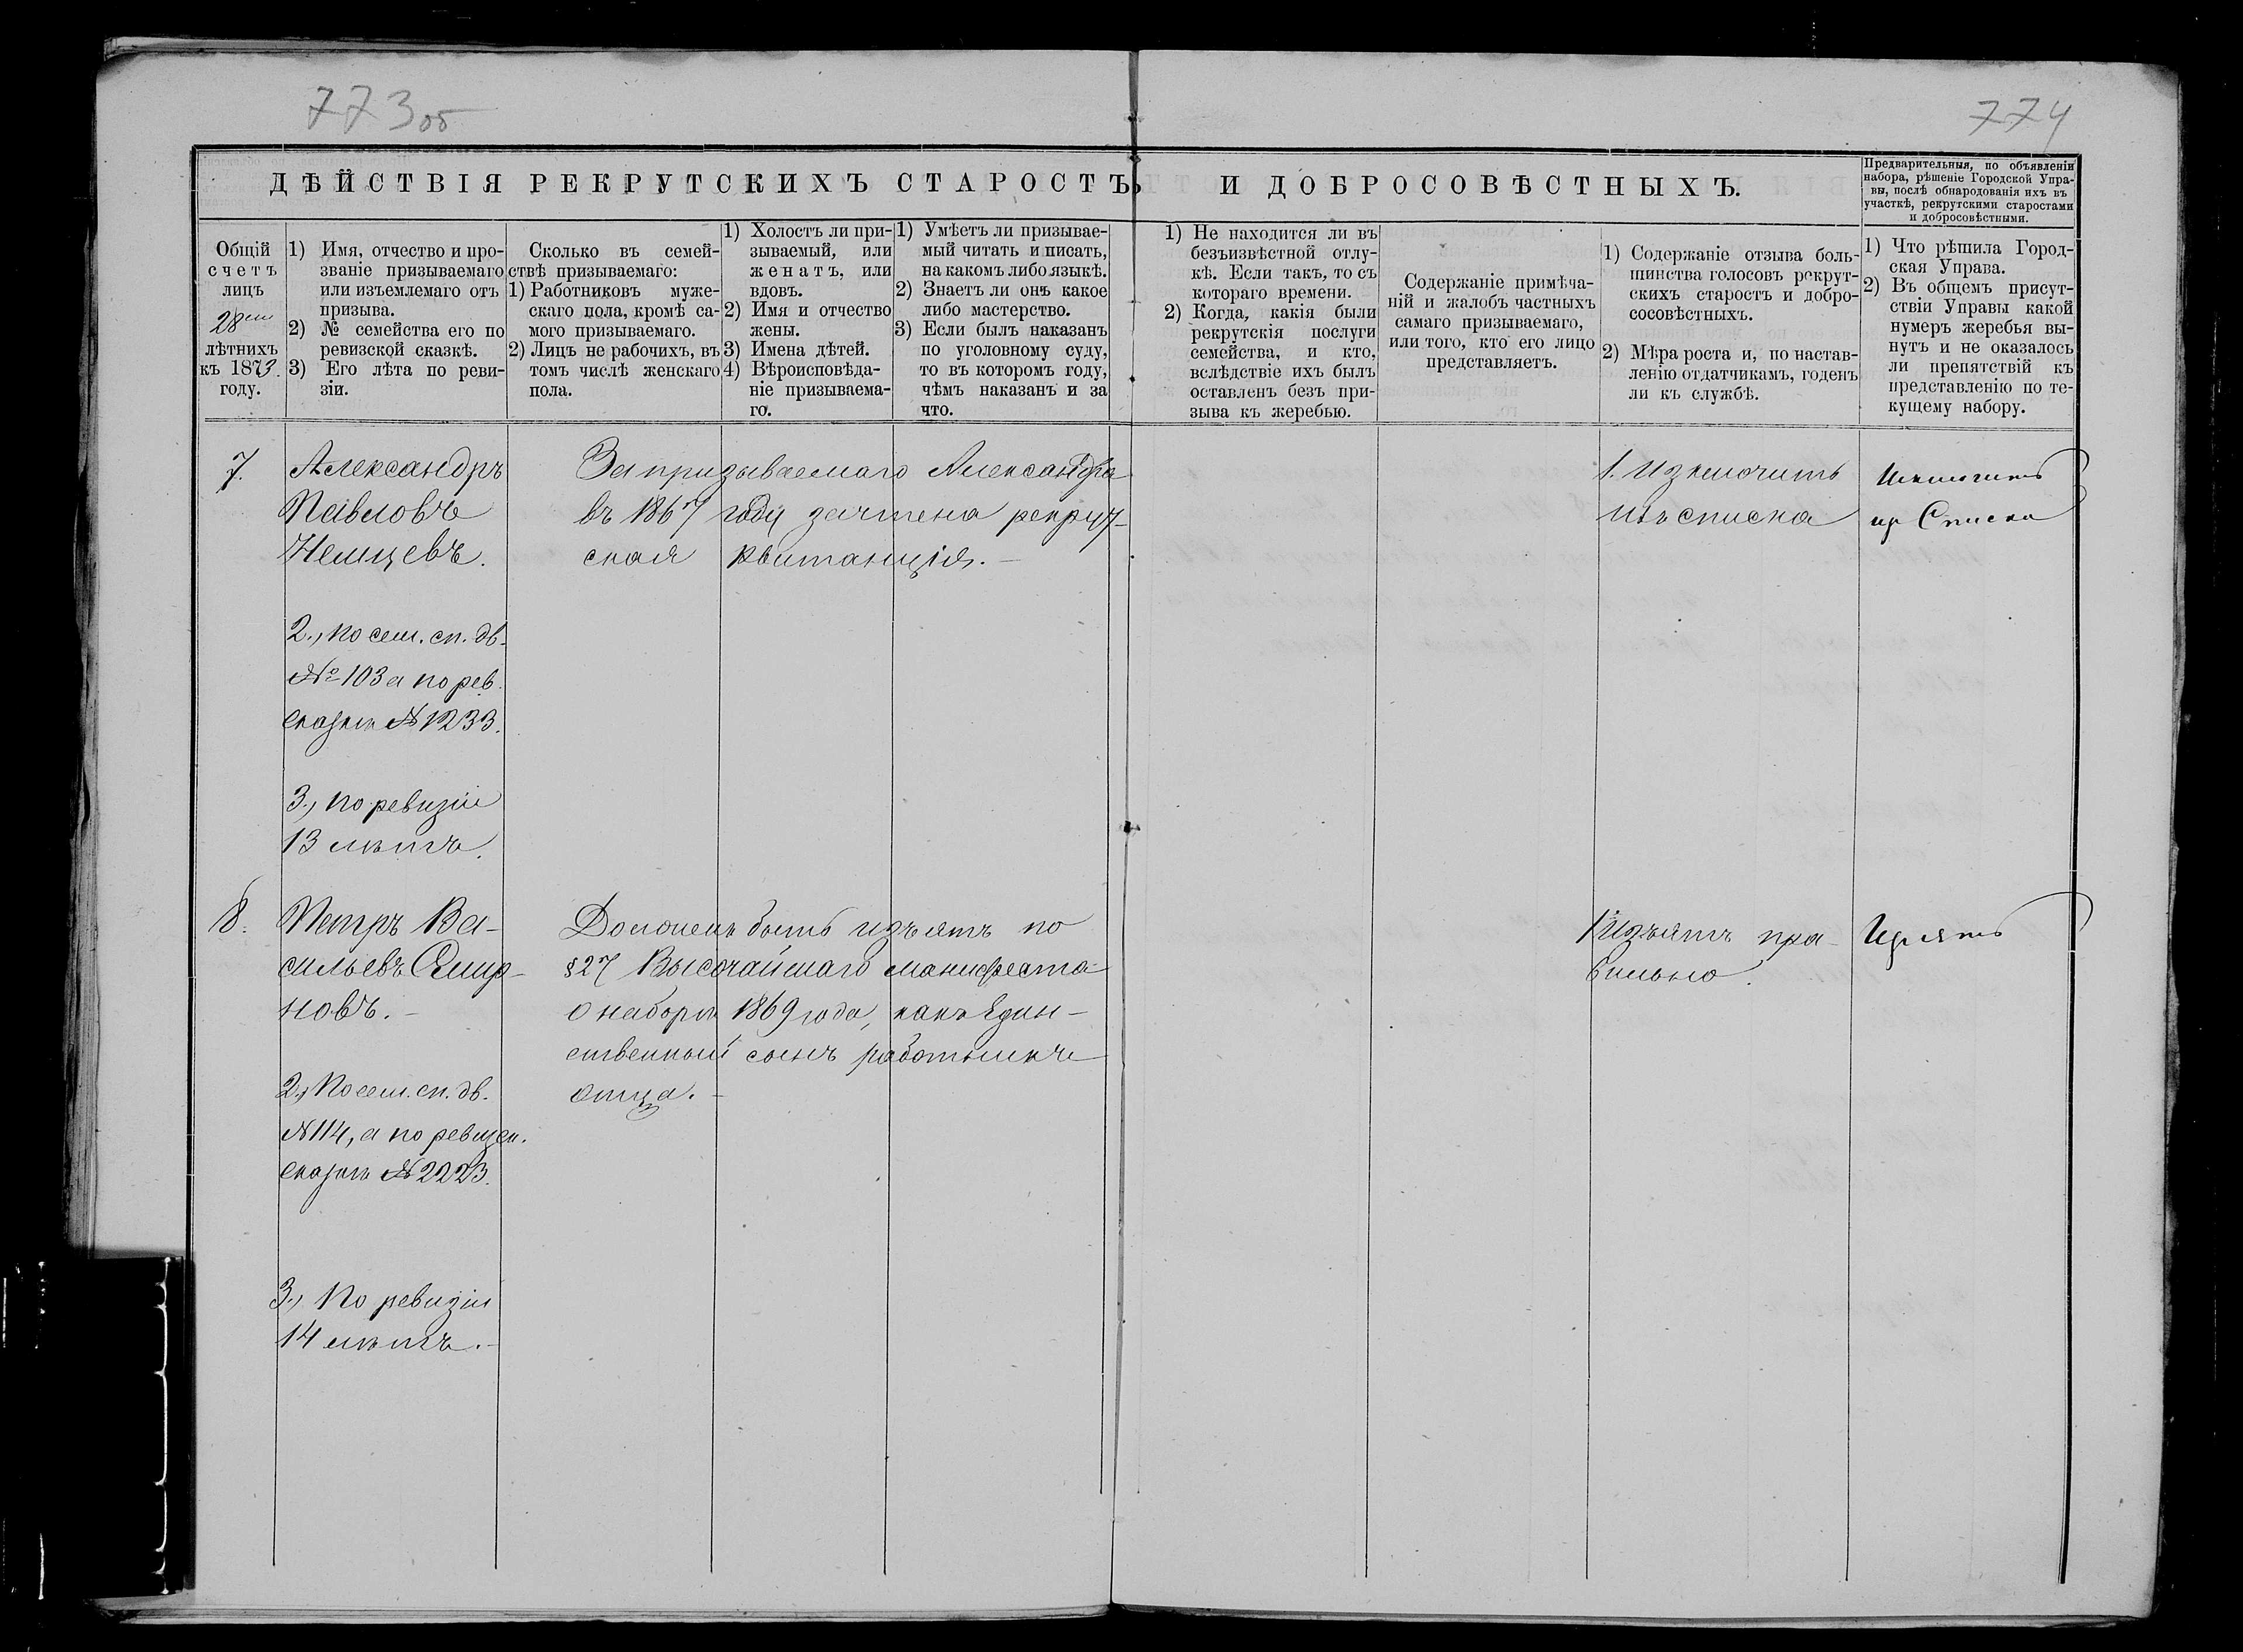 773об
774
ДѢЙСТВІЯ РЕКРУТСКИХЪ СТАРОСТЪ И ДОБРОСОВѢСТНЫХЪ.
Предварительныя, по объявленіи
набора, рѣшеніе Городской Упра-
вы, послѣ обнародованія ихъ въ
участкѣ, рекрутскими старостами
и добросовѣстными.
Общій
счетъ
лицъ
28ми
лѣтнихъ
къ 1873.
году.
1) Имя, отчество и про-
званіе призываемаго
или изъемлемаго отъ
призыва.
2) № семейства его по
ревизской сказкѣ.
3) Его лѣта по реви-
зіи.
Сколько въ семей-
ствѣ призываемаго:
1) Работниковъ муже-
скаго пола, кромѣ са-
мого призываемаго.
2) Лицъ не рабочихъ, въ
томъ числѣ женскаго
пола.
1) Холостъ ли при-
зываемый, или
женатъ, или
вдовъ.
2) Имя и отчество
жены.
3) Имена дѣтей.
4) Вѣроисповѣда-
ніе призываема-
го.
1) Умѣетъ ли призывае-
мый читать и писать,
на какомъ либо языкѣ.
2) Знаетъ ли онъ какое
либо мастерство.
3) Если былъ наказанъ
по уголовному суду,
то въ которомъ году,
чѣмъ наказанъ и за
что.
1) Не находится ли въ
безъизвѣстной отлу-
кѣ. Если такъ, то съ
котораго времени.
2) Когда, какія были
рекрутскія послуги
семейства, и кто,
вслѣдствіе ихъ былъ
оставленъ безъ при-
зыва къ жеребью.
Содержаніе примѣча-
ній и жалобъ частныхъ
самаго призываемаго,
или того, кто его лицо
представляетъ.
1) Содержаніе отзыва боль-
шинства голосовъ рекрут-
скихъ старостъ и добро-
совѣстныхъ.
2) Мѣра роста и, по настав-
ленію отдатчикамъ, годенъ
ли къ службѣ.
1) Что рѣшила Город-
ская Управа.
2) Въ общемъ присут-
ствіи Управы какой
нумеръ жеребья вы-
нутъ и не оказалось
ли препятствій къ
представленію по те-
кущему набору.
7.
Александръ
Павловъ
Немцевъ.
2., по сем. сп. дв.
№ 103 а по рев.
сказкѣ № 1233.
3., по ревизіи
13 лѣтъ.
За призываемаго Александра
въ 1867 году зачтена рекрут-
ская квитанція. —
1. Изключить
изъ списка
Исключить
изъ Списка
8.
Петръ Ва-
сильевъ Смир-
новъ. —
2., По сем. сп. дв.
№ 114, а по ревизск.
сказкѣ № 2223.
3., По ревизіи
14 лѣтъ. —
Долженъ быть изъятъ по
§ 27 Высочайшаго манифеста
о наборѣ 1869 года, какъ Един-
ственный сынъ работникъ
отца. —
1 Изъятъ пра-
вильно.
Изъять